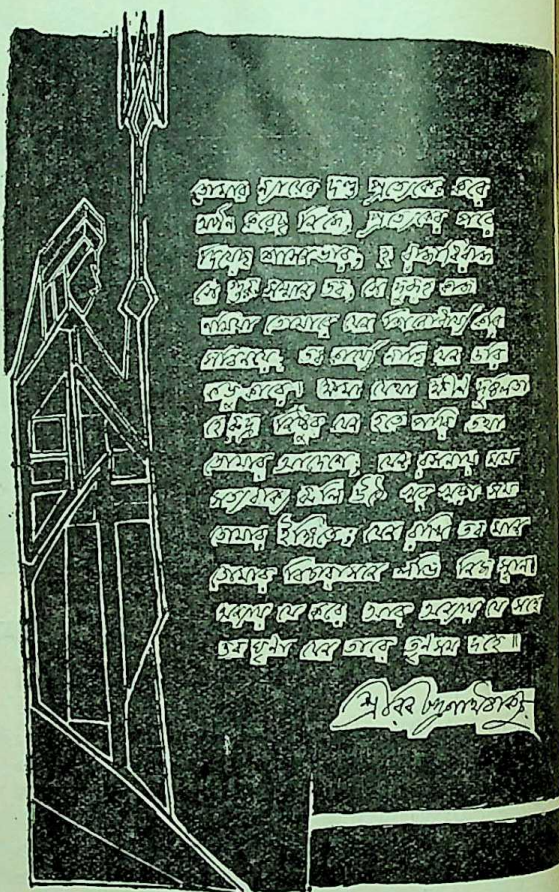 তোমার ন্যায়ের দণ্ড প্রত্যেকের করে
অর্পণ করেছ নিজে, প্রত্যেকের পরে
দিয়েছ শাসনভার, হে রাজাধিরাজ
সে গুরু সম্মান তব, সে দুরূহ কাজ
নমিয়া তোমারে যেন শিরোধার্য করি
সবিনয়ে, তব কার্যে নাহি যেন ডরি
কভু কারে॥ ক্ষমা যেথা ক্ষীণ দুর্বলতা
হে রুদ্র নিষ্ঠুর যেন হতে পারি তথা
তোমার আদেশে, যেন রসনায় মম
সত্যবাক্য ঝলি উঠে খর খড়্গ সম
তোমার ইঙ্গিতে, যেন রাখি তব মান
তোমার বিচারাসনে লভি নিজ স্থান।
অন্যায় যে করে আর অন্যায় যে সহে
তব ঘৃণা যেন তারে তৃণসম দহে॥
শ্রীরবীন্দ্রনাথঠাকুর